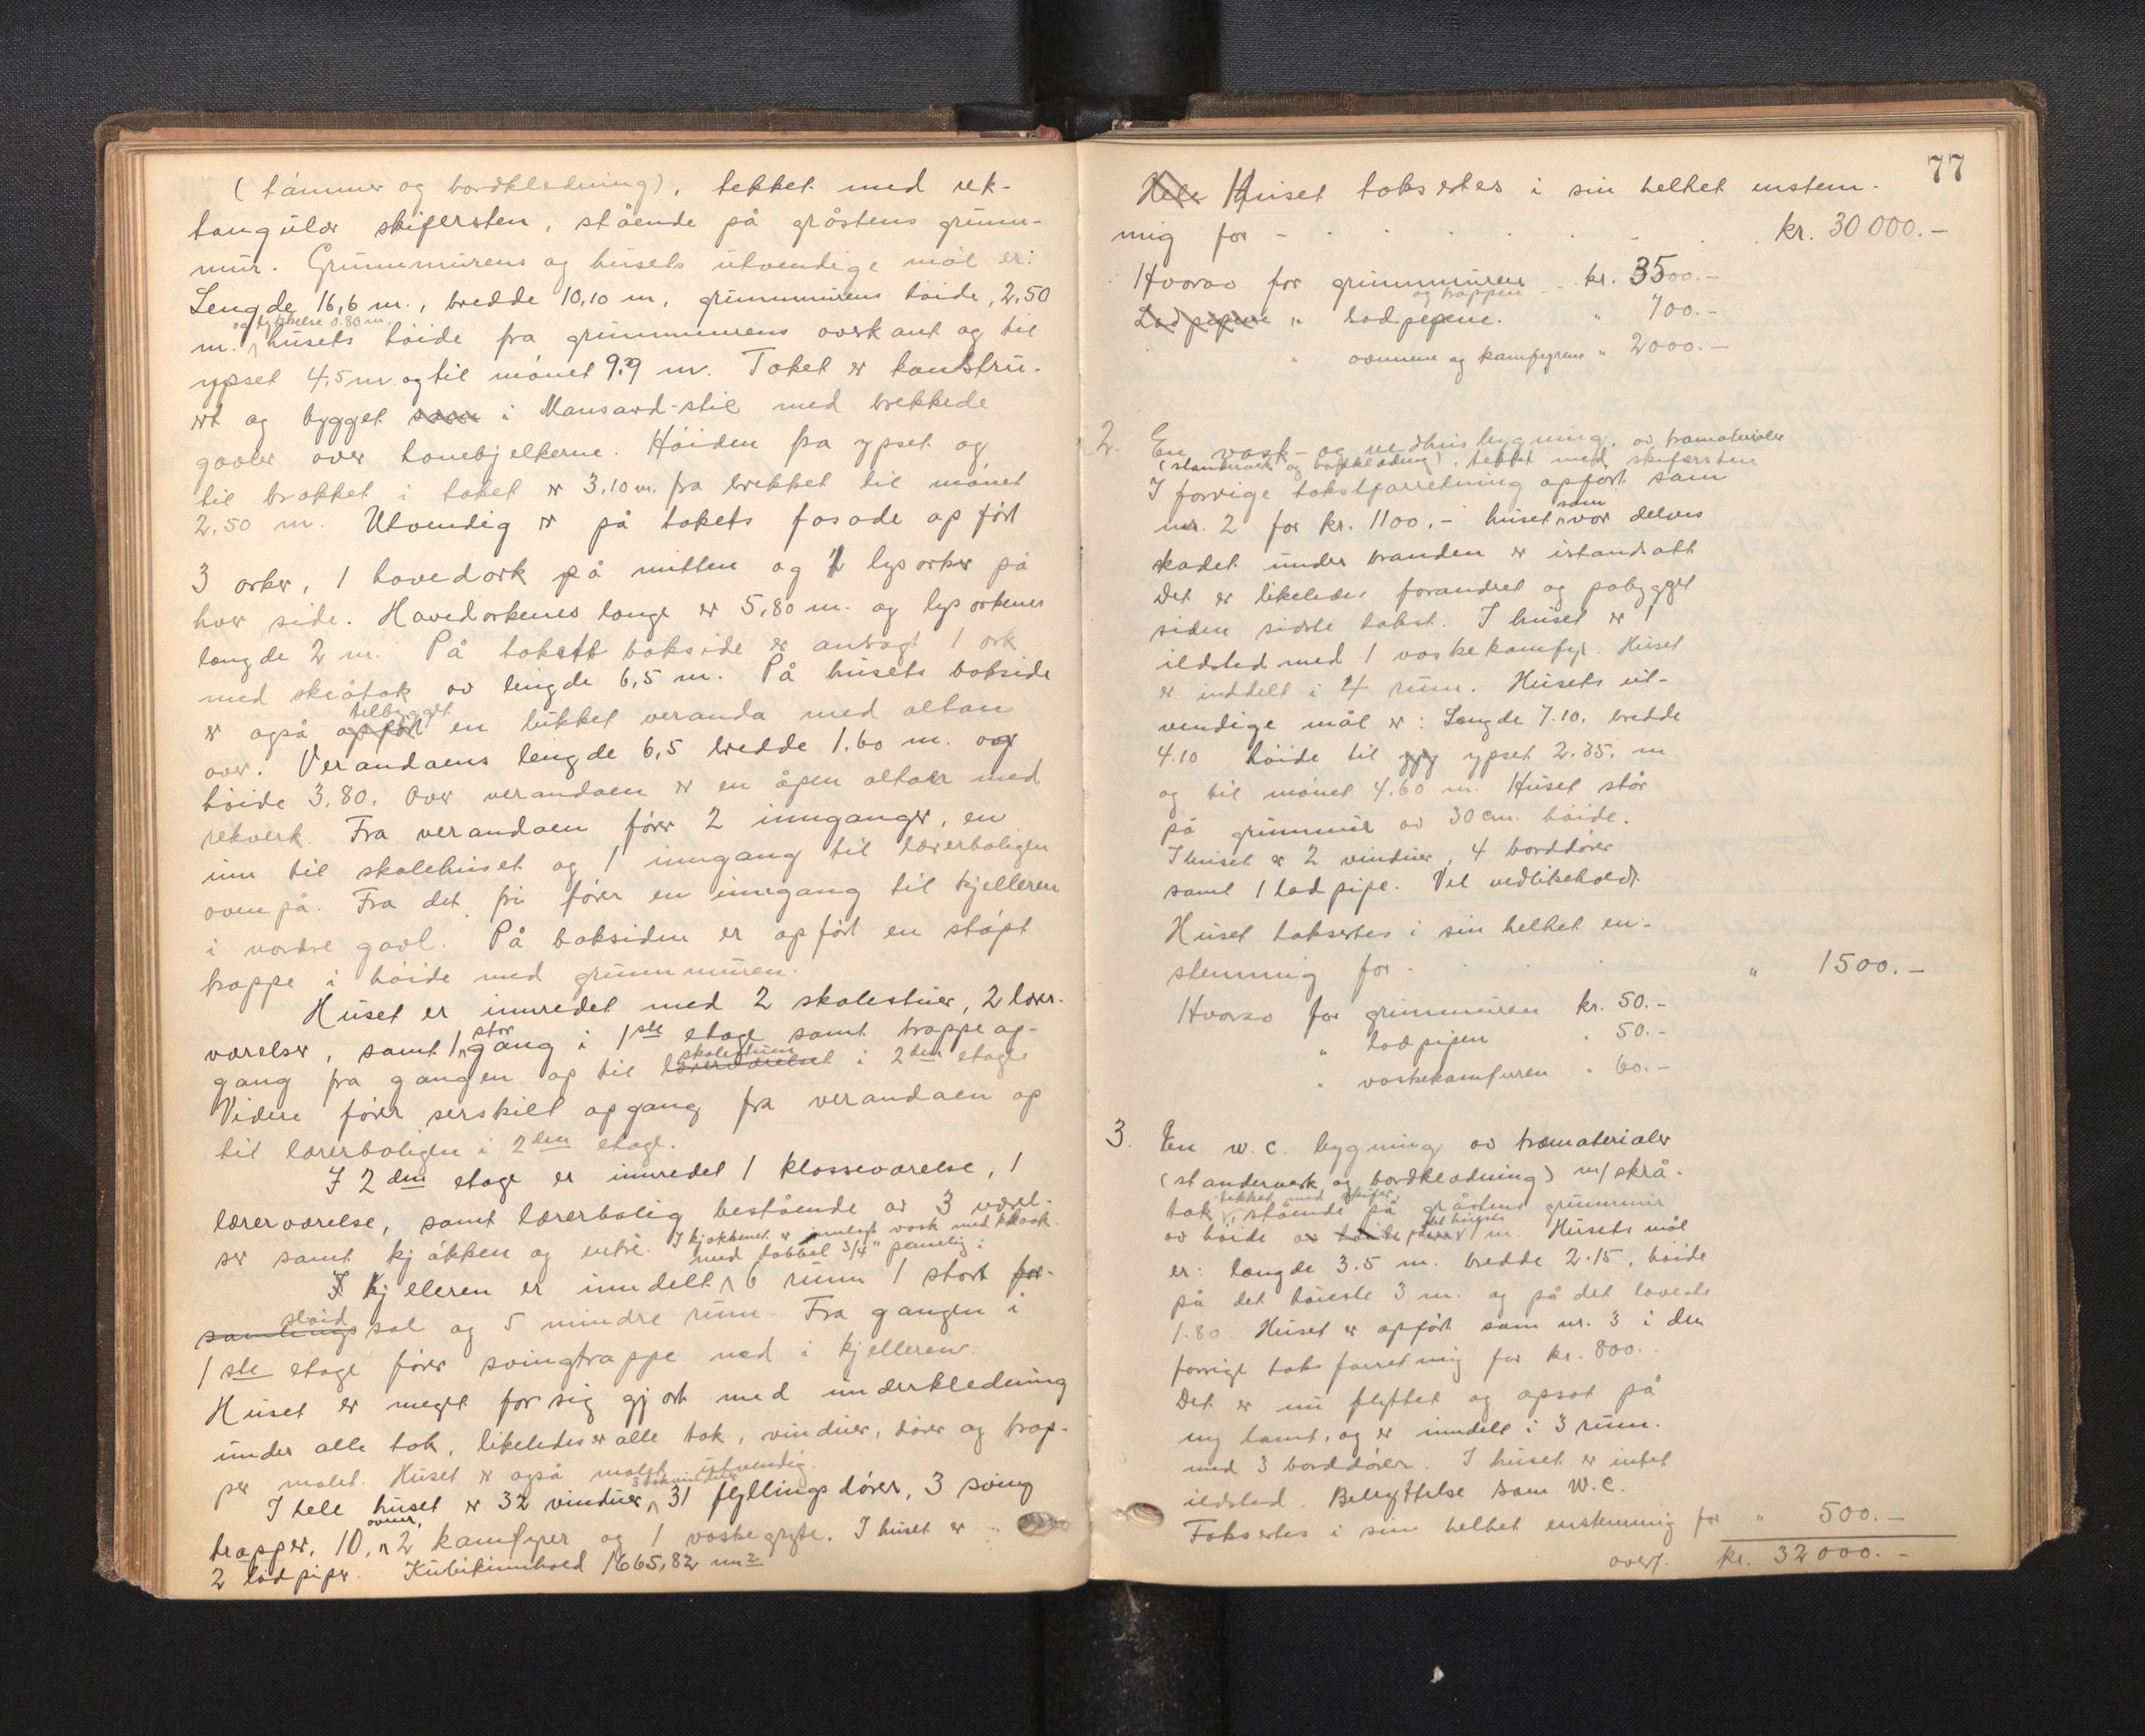 (tømmer og bordkledning), tekket med rek-
tangulær skifersten, stående på gråstens grunn-
mur. Grunnmurens og husets utvendige mål er:
Lengde 16,6 m., bredde 10,10 m, grunnmurens høide, 2,50
og tykkelse 0.80 m.
m. husets høide fra grunnmurens overkant og til
ypset 4,5 m. og til mønet 9.9 m. Taket er konstru-
ert og bygget i Mansard-stil med brekkede
gavler over hanebjelkerne. Høiden fra ypset og
til brekket i taket er 3,10 m. fra brekket til mønet
2,50 m. Utvendig er på takets fasade opført
3 arker, 1 hovedark på mitten og 2 lysarker på
hver side. Hovedarkenes lange er 5,80 m. og lysarkenes
længde 2 m. På takets bakside er anbragt 1 ark
med skråtak av lengde 6,5 m. På husets bakside
tilbygget
er også opført en lukket veranda med altan
over. Verandaens lengde 6,5 bredde 1.60 m. og
høide 3,80. Over verandaen er en åpen altan med
rekverk. Fra verandaen fører 2 innganger, en
inn til skolehuset og 1 inngang til lærerboligen
ovenpå. Fra det fri fører en inngang til kjelleren
i nordre gavl. På baksiden er opført en støpt
trappe i høide med grunnmuren.
Huset er innredet med 2 skolestuer, 2 lærer-
stor
værelser, samt 1 gang i 1ste etage samt trappeop-
skolerum
gang fra gangen op til lærerværelset i 2den etage
Videre fører serskilt opgang fra verandaen op
til lærerboligen i 2den etage.
I 2den etage er innredet 1 klasseværelse, 1
lærerværelse, samt lærerbolig bestående av 3 værel-
ser samt kjøkken og entré. I kjøkkenet er innlagt vask med kloak.
med dobbel 3/4" panelig i
Kjelleren er inndelt 6 rum 1 stort for-
sløid
samlings sal og 5 mindre rum. Fra gangen i
1ste etage fører svingtrappe ned i kjelleren.
Huset er meget forsig gjort med underkledning
under alle tak, likeledes er alle tak, vinduer, dører og trap-
per malt. Huset er også malt utvendig.
3 takvinduer
I hele huset er 32 vinduer, 31 fyllings dører, 3 sving
ovner,
trapper, 10, 2 kamfyrer og 1 vaskegryte. I huset er
2 lodpiper. Kubikinnhold 1665,82 m2
77
Hele Huset takseres i sin helhet enstem-
mig for - kr. 30 000.-
Hvorav for grunnmuren kr. 3500.-
og trappen
Lodpipene " lodpipene. " 700.-
" ovnene og kamfyrene " 2000.-
2. En vask- og vedhusbygning, av træmaterialer
(standerverk og bordkledning), tekket med skifersten
I forrige takstforretning opført som
som
nr. 2 for kr. 1100,- huset var delvis
skadet under branden er istandsatt
Det er likeledes forandret og påbygget
siden sidste takst. I huset er 1
ildsted med 1 vaskekamfyr. Huset
er inddelt i 4 rum. Husets ut-
vendige mål er: Længde 7.10. bredde
4.10 høide til ypset 2.35. m
og til mønet 4.60 m. Huset står
på grunnmur av 30 cm. høide.
I huset er 2 vinduer, 4 borddører
samt 1 lodpipe. Vel vedlikeholdt.
Huset takseres i sin helhet en-
stemmig for - " 1500.-
Hvorav for grunnmuren kr. 50.-
" lodpipen " 50.-
" vaskekamfyren " 60.-
3. En w.c. bygning av træmaterialer
(standerverk og bordkledning) m/ skrå-
tekket med skifer,
tak, stående på gråstens grunnmur
av høide 1 m. Husets mål
er: længde 3.5 m. bredde 2.15, høide
på det høieste 3 m. og på det laveste
1.80. Huset er opført som nr. 3 i den
forrige taksforretning for kr. 800.-
Det er nu flyttet og opsat på
ny tomt, og er inndelt i 3 rum.
med 3 borddører. I huset er intet
ildsted. Benyttelse som W.C.
Takseres i sin helhet enstemmig for " 500.-
overf. kr. 32 000.-